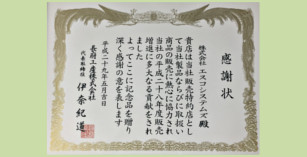 感謝状
株式会社 エスコシステムズ 殿
貴店は当社販売特約店とし
て当社製品ならびに取扱い
商品の販売に熱心に協力され
当社の平成二十八年度販売
増進に多大なる貢献をされ
ました
よってここに記念品を贈り
深く感謝の意を表します
平成二十九年五月吉日
長府工産株式会社
代表取締役 伊奈紀道